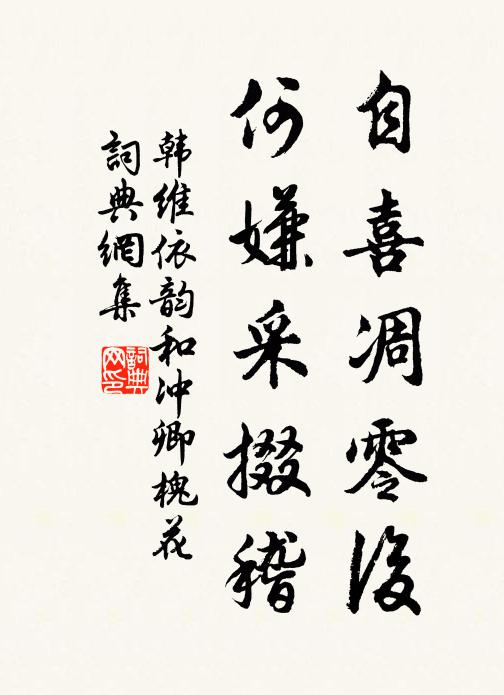 自喜凋零後
何嫌采掇稽
韩维依韵和冲卿槐花
詞典網集
詞典网印